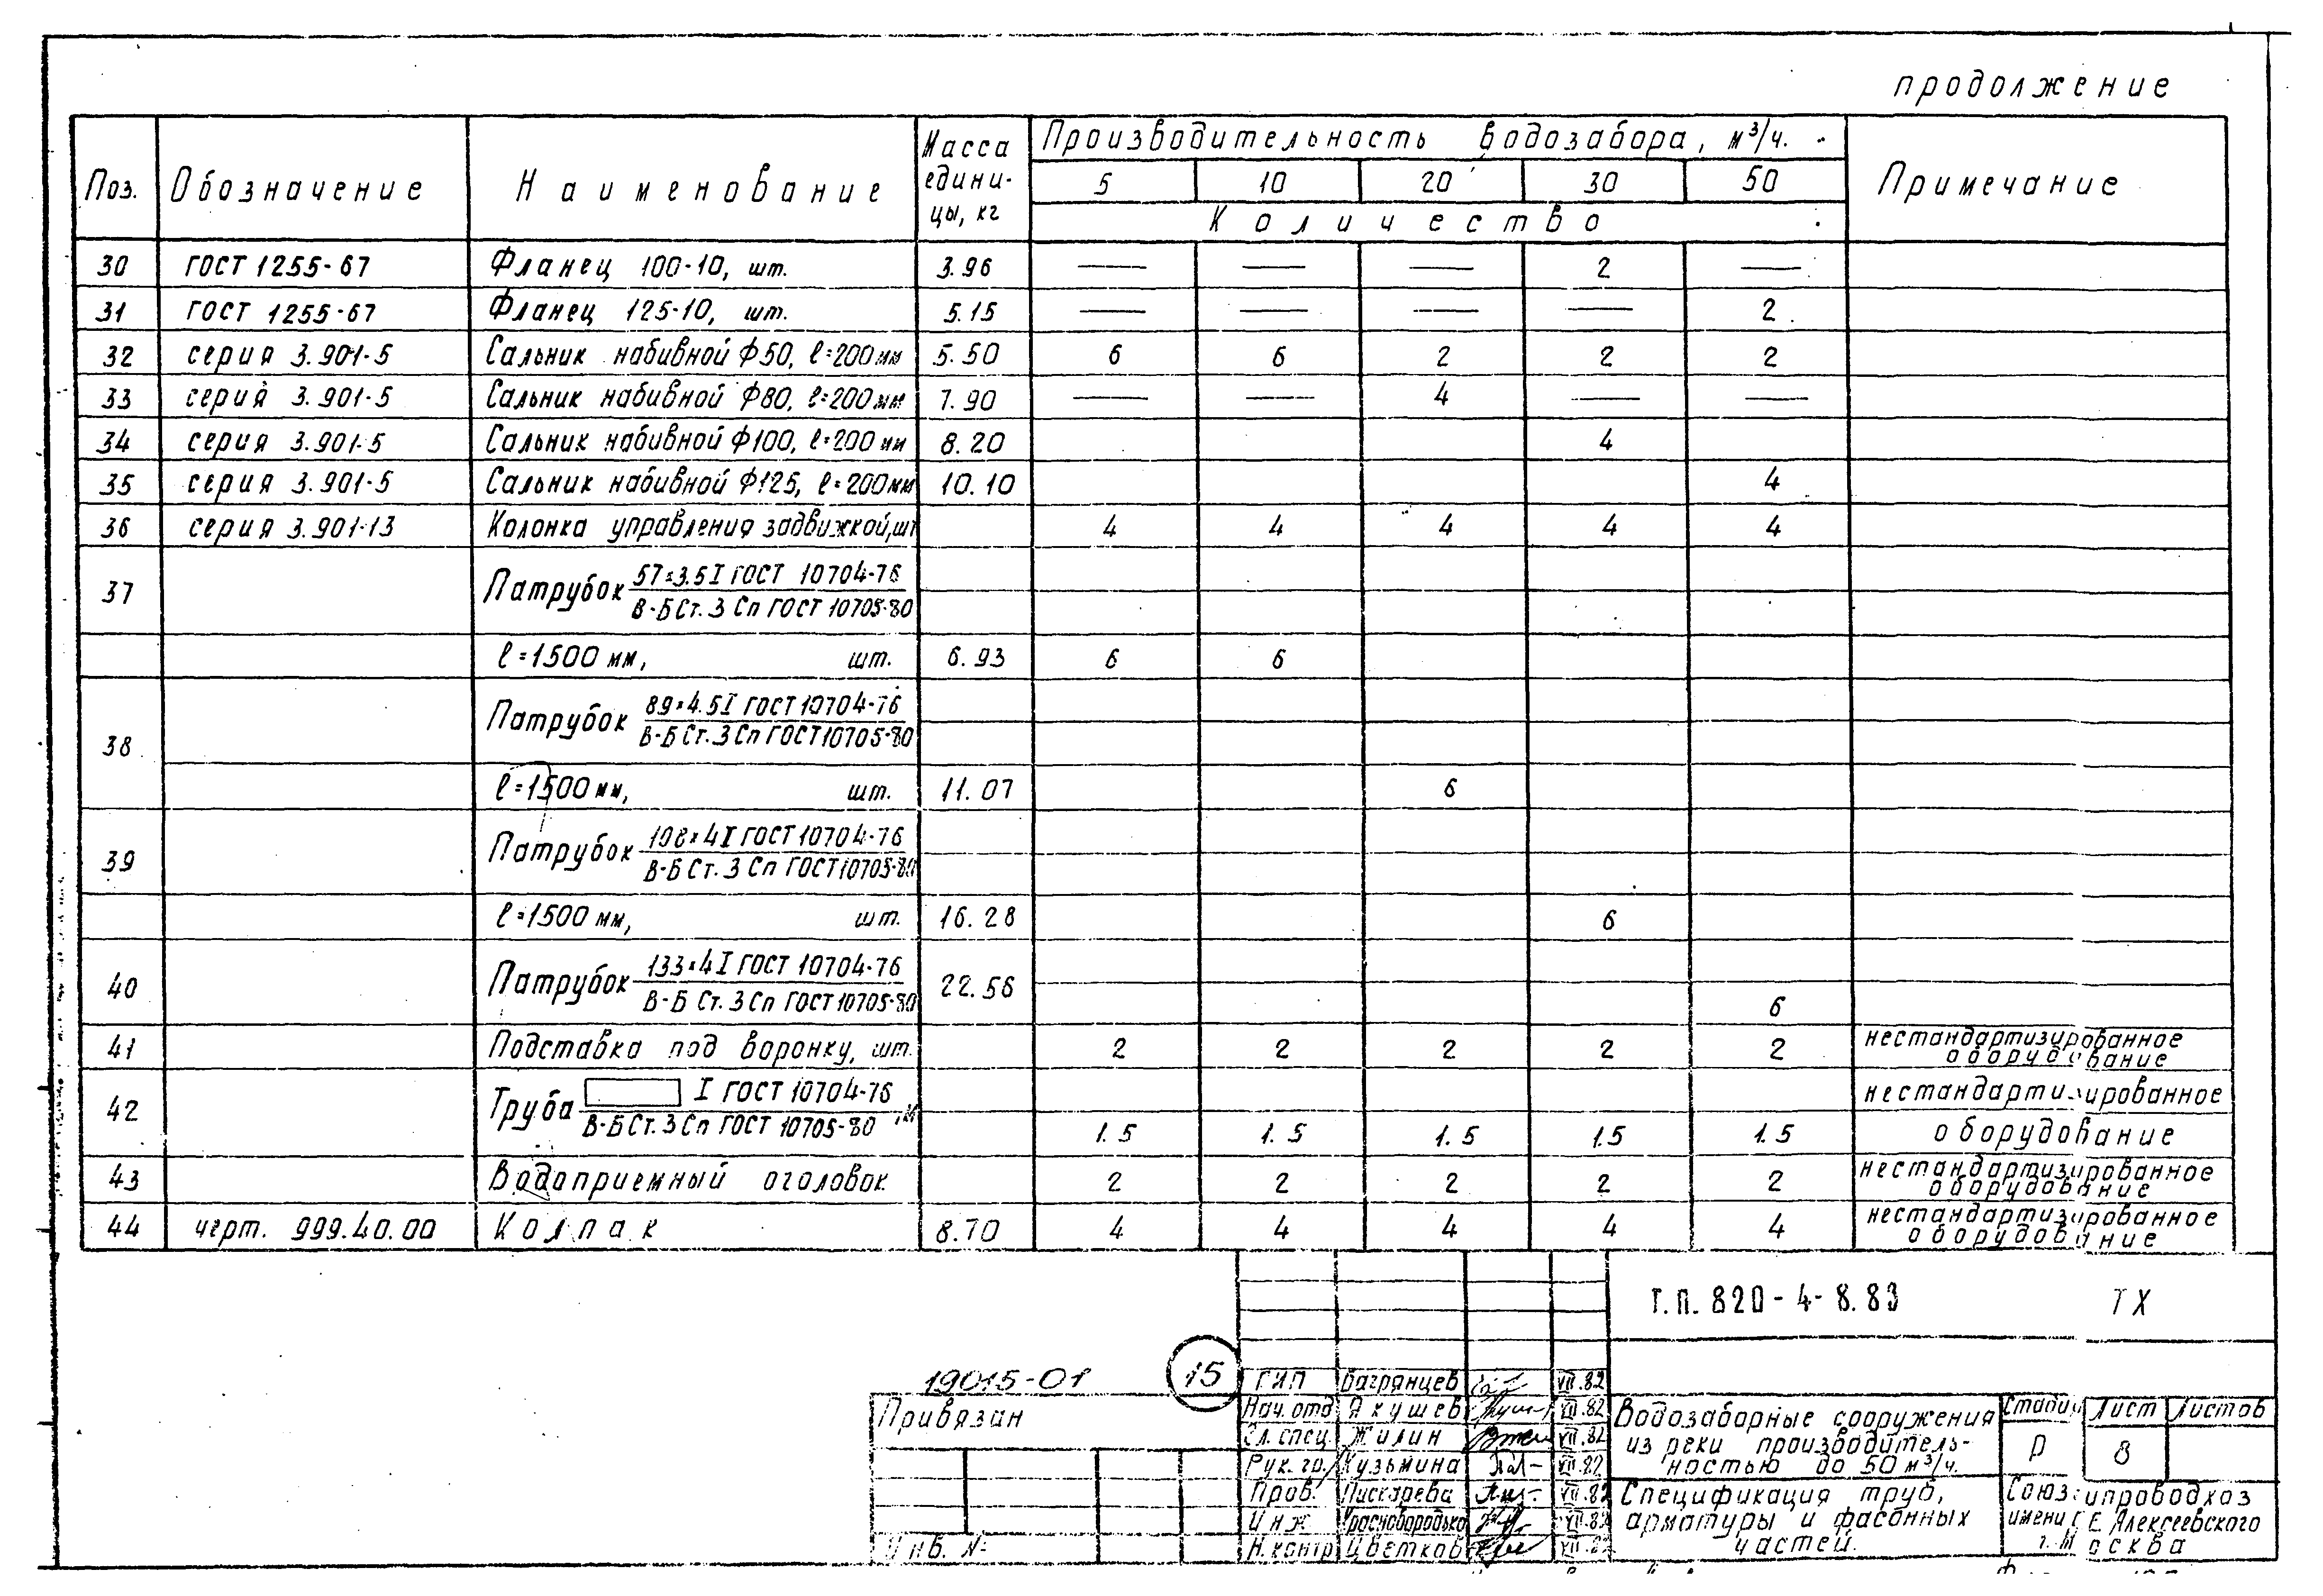 продолжение
Поз. Обозначение Наименование Масса едини-цы, кг Производительность водозабора, м³/ч. Примечание
5 10 20 30 50
Количество
30 ГОСТ 1255-67 Фланец 100-10, шт. 3.96 — — — 2 —
31 ГОСТ 1255-67 Фланец 125-10, шт. 5.15 — — — — 2
32 серия 3.901-5 Сальник набивной ф50, ℓ=200мм 5.50 6 6 2 2 2
33 серия 3.901-5 Сальник набивной ф80, ℓ=200мм 7.90 — — 4 — —
34 серия 3.901-5 Сальник набивной ф100, ℓ=200мм 8.20 4
35 серия 3.901-5 Сальник набивной ф125, ℓ=200мм 10.10 4
36 серия 3.901-13 Колонка управления задвижкой,шт 4 4 4 4 4
37 Патрубок 57×3.5 I ГОСТ 10704-76
В-Б Ст. 3 Сп ГОСТ 10705-80
ℓ=1500 мм, шт. 6.93 6 6
38 Патрубок 89×4.5 I ГОСТ 10704-76
В-Б Ст. 3 Сп ГОСТ 10705-80
ℓ=1500 мм, шт. 11.07 6
39 Патрубок 108×4 I ГОСТ 10704-76
В-Б Ст. 3 Сп ГОСТ 10705-80
ℓ=1500 мм, шт. 16.28 6
40 Патрубок 133×4 I ГОСТ 10704-76 22.56
В-Б Ст. 3 Сп ГОСТ 10705-80 6
41 Подставка под воронку, шт. 2 2 2 2 2 нестандартизированное
оборудование
42 Труба I ГОСТ 10704-76 нестандартизированное
В-Б Ст. 3 Сп ГОСТ 10705-80 ,м 1.5 1.5 1.5 1.5 1.5 оборудование
43 Водоприемный оголовок 2 2 2 2 2 нестандартизированное
оборудование
44 черт. 999.40.00 Колпак 8.70 4 4 4 4 4 нестандартизированное
оборудование
Т.П. 820-4-8.83 ТХ
19015-01 15
Привязан
Инв. №
ГИП Багрянцев VII.82
Нач.отд Якушев VII.82
Гл. спец. Жилин VII.82
Рук. гр. Кузьмина VII.82
Пров. Пискарева VII.82
Инж Краснобородько VII.82
Н.контр Цветков VII.82
Водозаборные сооружения
из реки производитель-
ностью до 50 м³/ч.
Стадия Лист Листов
Р 8
Спецификация труб,
арматуры и фасонных
частей.
Союзгипроводхоз
имени Е.Е. Алексеевского
г. Москва